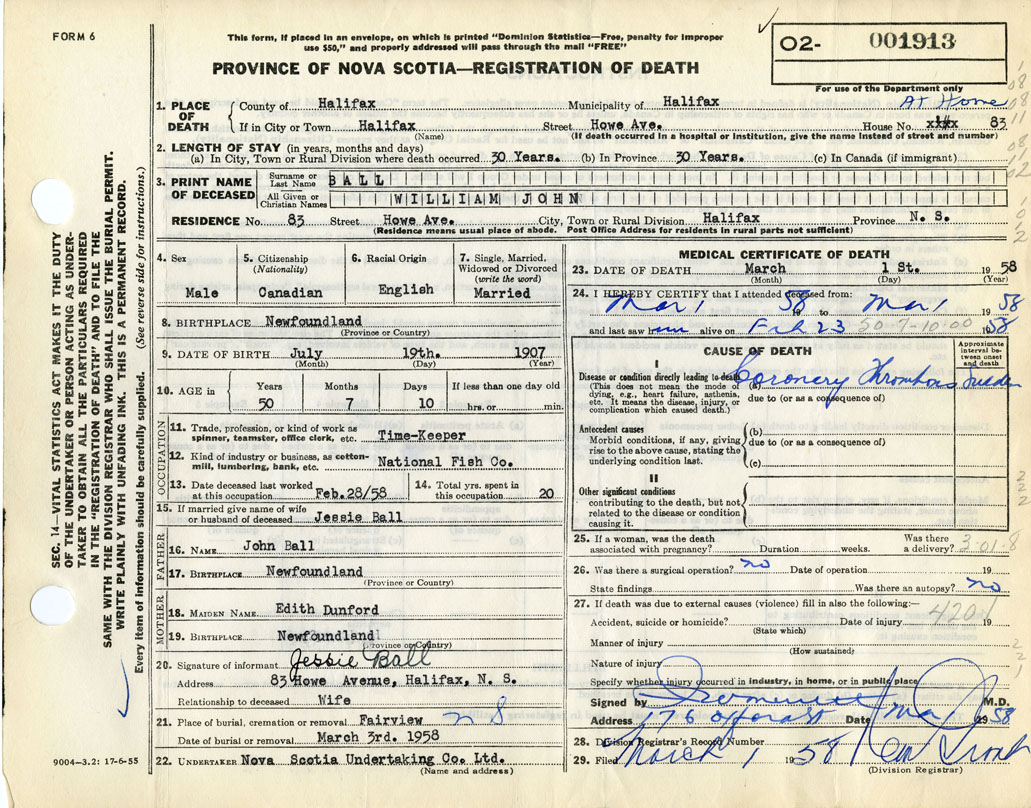 FORM 6
This form, if placed in an envelope, on which is printed "Dominion Statistics—Free, penalty for improper
use $50," and properly addressed will pass through the mail "FREE"
O2- 001913
For use of the Department only
PROVINCE OF NOVA SCOTIA—REGISTRATION OF DEATH
1. PLACE OF DEATH
County of Halifax Municipality of Halifax At Home
If in City or Town Halifax Street Howe Ave. House No. 83
(Name) (If death occurred in a hospital or institution, give the name instead of street and number)
2. LENGTH OF STAY (in years, months and days)
(a) In City, Town or Rural Division where death occurred 30 Years. (b) In Province 30 Years. (c) In Canada (if immigrant)
3. PRINT NAME OF DECEASED
Surname or Last Name BALL
All Given or Christian Names WILLIAM JOHN
RESIDENCE No. 83 Street Howe Ave. City, Town or Rural Division Halifax Province N. S.
(Residence means usual place of abode. Post Office Address for residents in rural parts not sufficient)
4. Sex
Male
5. Citizenship
(Nationality)
Canadian
6. Racial Origin
English
7. Single, Married, Widowed or Divorced
(write the word)
Married
8. BIRTHPLACE Newfoundland
(Province or Country)
9. DATE OF BIRTH July 19th. 1907
(Month) (Day) (Year)
10. AGE in Years Months Days If less than one day old
50 7 10 hrs. or min.
OCCUPATION
11. Trade, profession, or kind of work as
spinner, teamster, office clerk, etc. Time-Keeper
12. Kind of industry or business, as cotton-
mill, lumbering, bank, etc. National Fish Co.
13. Date deceased last worked
at this occupation Feb.28/58
14. Total yrs. spent in
this occupation 20
15. If married give name of wife
or husband of deceased Jessie Ball
FATHER
16. NAME John Ball
17. BIRTHPLACE Newfoundland
(Province or Country)
MOTHER
18. MAIDEN NAME Edith Dunford
19. BIRTHPLACE Newfoundland
(Province or Country)
20. Signature of informant Jessie Ball
Address 83 Howe Avenue, Halifax, N. S.
Relationship to deceased Wife
21. Place of burial, cremation or removal Fairview N S
Date of burial or removal March 3rd. 1958
22. UNDERTAKER Nova Scotia Undertaking Co. Ltd.
(Name and address)
MEDICAL CERTIFICATE OF DEATH
23. DATE OF DEATH March 1 St. 1958
(Month) (Day) (Year)
24. I HEREBY CERTIFY that I attended deceased from:
Mar 1 1958 to Mar 1 1958
and last saw him alive on Feb 23 50-7-10-00 1958
CAUSE OF DEATH
Approximate interval between onset and death
I
Disease or condition directly leading to death
(This does not mean the mode of
dying, e.g., heart failure, asthenia,
etc. It means the disease, injury, or
complication which caused death.)
(a) Coronary Thrombosis Sudden
due to (or as a consequence of)
Antecedent causes
Morbid conditions, if any, giving
rise to the above cause, stating the
underlying condition last.
(b)
due to (or as a consequence of)
(c)
II
Other significant conditions
contributing to the death, but not
related to the disease or condition
causing it.
25. If a woman, was the death
associated with pregnancy? Duration weeks. Was there a delivery? 3-01-8
26. Was there a surgical operation? no Date of operation 19
State findings Was there an autopsy? no
27. If death was due to external causes (violence) fill in also the following:—
Accident, suicide or homicide? Date of injury 19
(State which)
4201
Manner of injury
(How sustained)
Nature of injury
Specify whether injury occurred in industry, in home, or in public place
Signed by M.D.
Address 176 Date Mar 1 1958
28. Division Registrar's Record Number
29. Filed March 1 1958
(Division Registrar)
SEC. 14—VITAL STATISTICS ACT MAKES IT THE DUTY
OF THE UNDERTAKER OR PERSON ACTING AS UNDER-
TAKER TO OBTAIN ALL THE PARTICULARS REQUIRED
IN THE "REGISTRATION OF DEATH" AND TO FILE THE
SAME WITH THE DIVISION REGISTRAR WHO SHALL ISSUE THE BURIAL PERMIT.
WRITE PLAINLY WITH UNFADING INK. THIS IS A PERMANENT RECORD.
Every item of information should be carefully supplied. (See reverse side for instructions.)
9004-3.2: 17-6-55